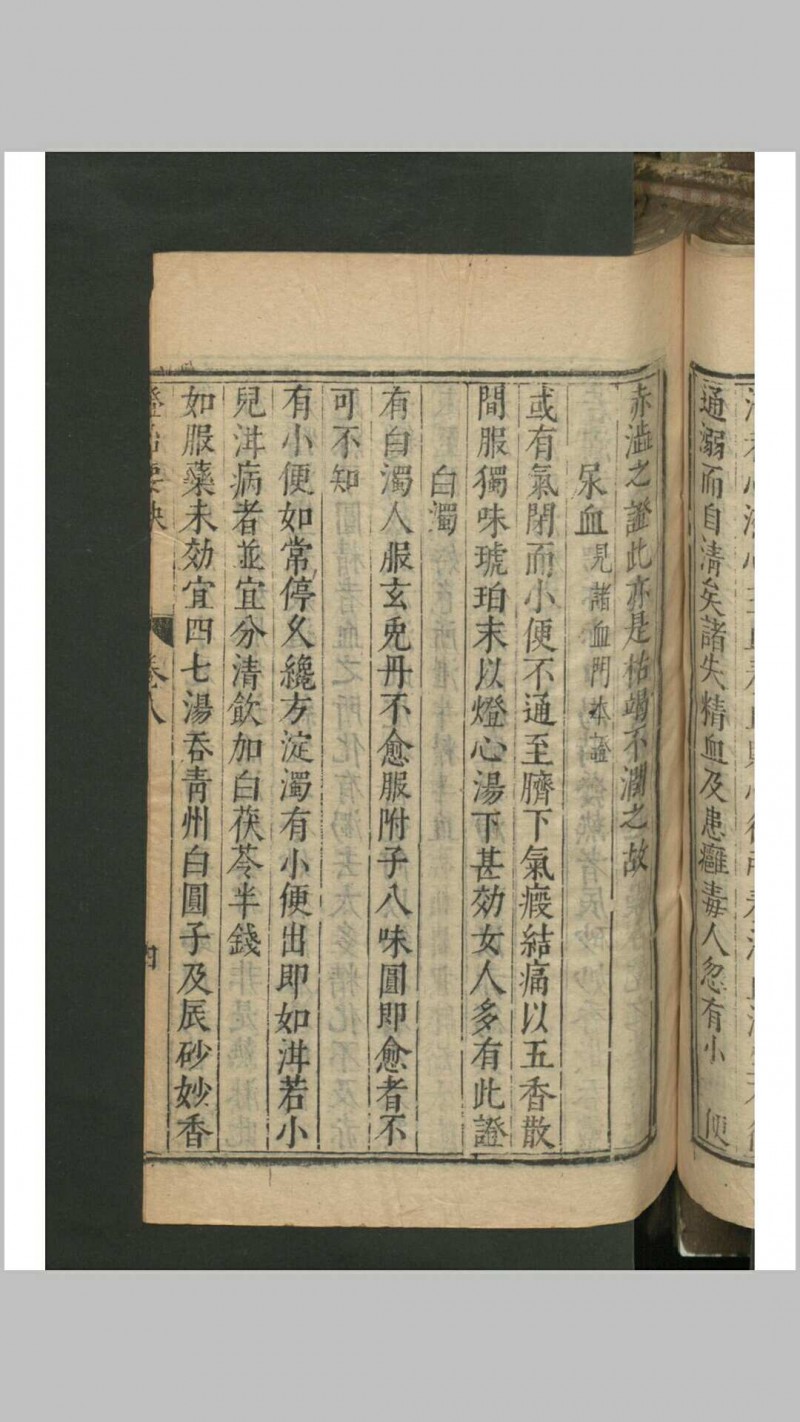 通溺而自清矣諸失精血及患癰毒人忽有小便
赤澁之證此亦是枯竭不潤之故
尿血見諸血門本證
或有氣閉而小便不通至臍下氣瘕結痛以五香散
間服獨味琥珀末以燈心湯下甚効女人多有此證
白濁
有白濁人服玄兎丹不愈服附子八味圓即愈者不
可不知
有小便如常停久纔方淀濁有小便出即如泔若小
兒泔病者並宜分清飲加白茯苓半錢
如服藥未効宜四七湯吞青州白圓子及辰砂妙香
證治要訣 卷八